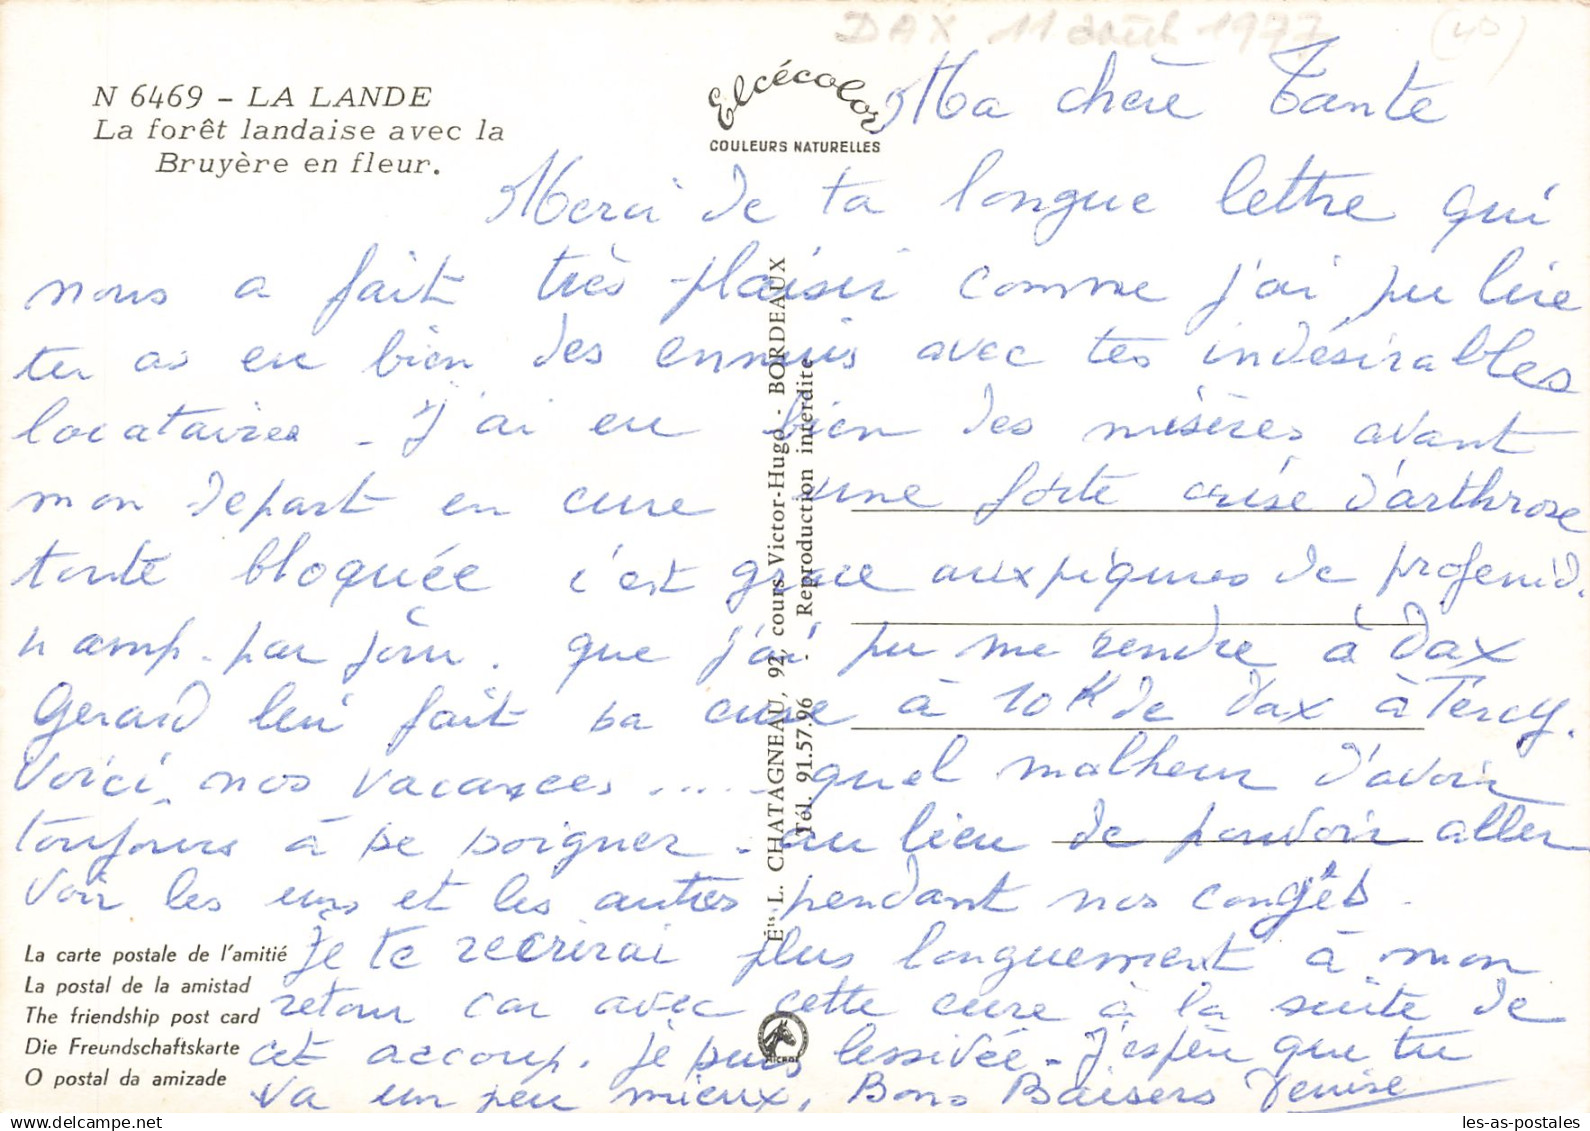 DAX 11 août 1977 (40)
N 6469 - LA LANDE
La forêt landaise avec la
Bruyère en fleur.
Elcécolor
COULEURS NATURELLES
Ma chère Tante
Merci de ta longue lettre qui
nous a fait très plaisir comme j'ai pu lire
tu as eu bien des ennuis avec tes indésirables
locataires - J'ai eu bien des misères avant
mon depart en cure une forte crise d'arthrose
toute bloquée c'est grace aux piqures de profenid.
n amp. par jour. que j'ai pu me rendre à Dax
Gerard lui fait sa cure à 10 K de Dax à Tercy.
Voici nos vacances ..... quel malheur d'avoir
toujours à se soigner - au lieu de pouvoir aller
voir les uns et les autres pendant nos congés.
Je te recrirai plus longuement à mon
retour car avec cette cure à la suite de
cet accoup. je suis lessivée - J'espère que tu
va un peu mieux, Bons Baisers Denise
Ets L. CHATAGNEAU, 92, cours Victor-Hugo - BORDEAUX
Tél. 91.57.96 - Reproduction interdite
La carte postale de l'amitié
La postal de la amistad
The friendship post card
Die Freundschaftskarte
O postal da amizade
les-as-postales